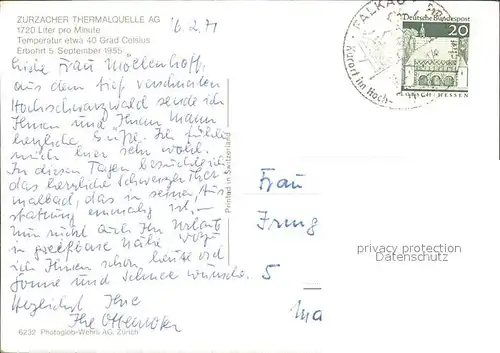 ZURZACHER THERMALQUELLE AG
1720 Liter pro Minute
Temperatur etwa 40 Grad Celsius
Erbohrt 5 September 1955
16.2.71
Liebe Frau Möllenhoff,
aus dem tief verschneiten
Hochschwarzwald sende ich
Ihnen und Ihrem Mann
herzliche Grüße. Ich fühle
mich hier sehr wohl.
In diesen Tagen besuchte ich
das herrliche Schweizer Ther
malbad, das in seiner Aus
stattung einmalig ist.
Nun rückt auch Ihr Urlaub
in greifbare Nähe wozu
ich Ihnen schon heute viel
Sonne und Schnee wünsche.
Herzlichst Ihre
Ihe
6232 Photoglob-Wehrli AG, Zürich
Printed in Switzerland
FALKAU
Kurort im Hoch-
Deutsche Bundespost
20
LORSCH / HESSEN
Frau
Irmg
5
Ma
privacy protection
Datenschutz